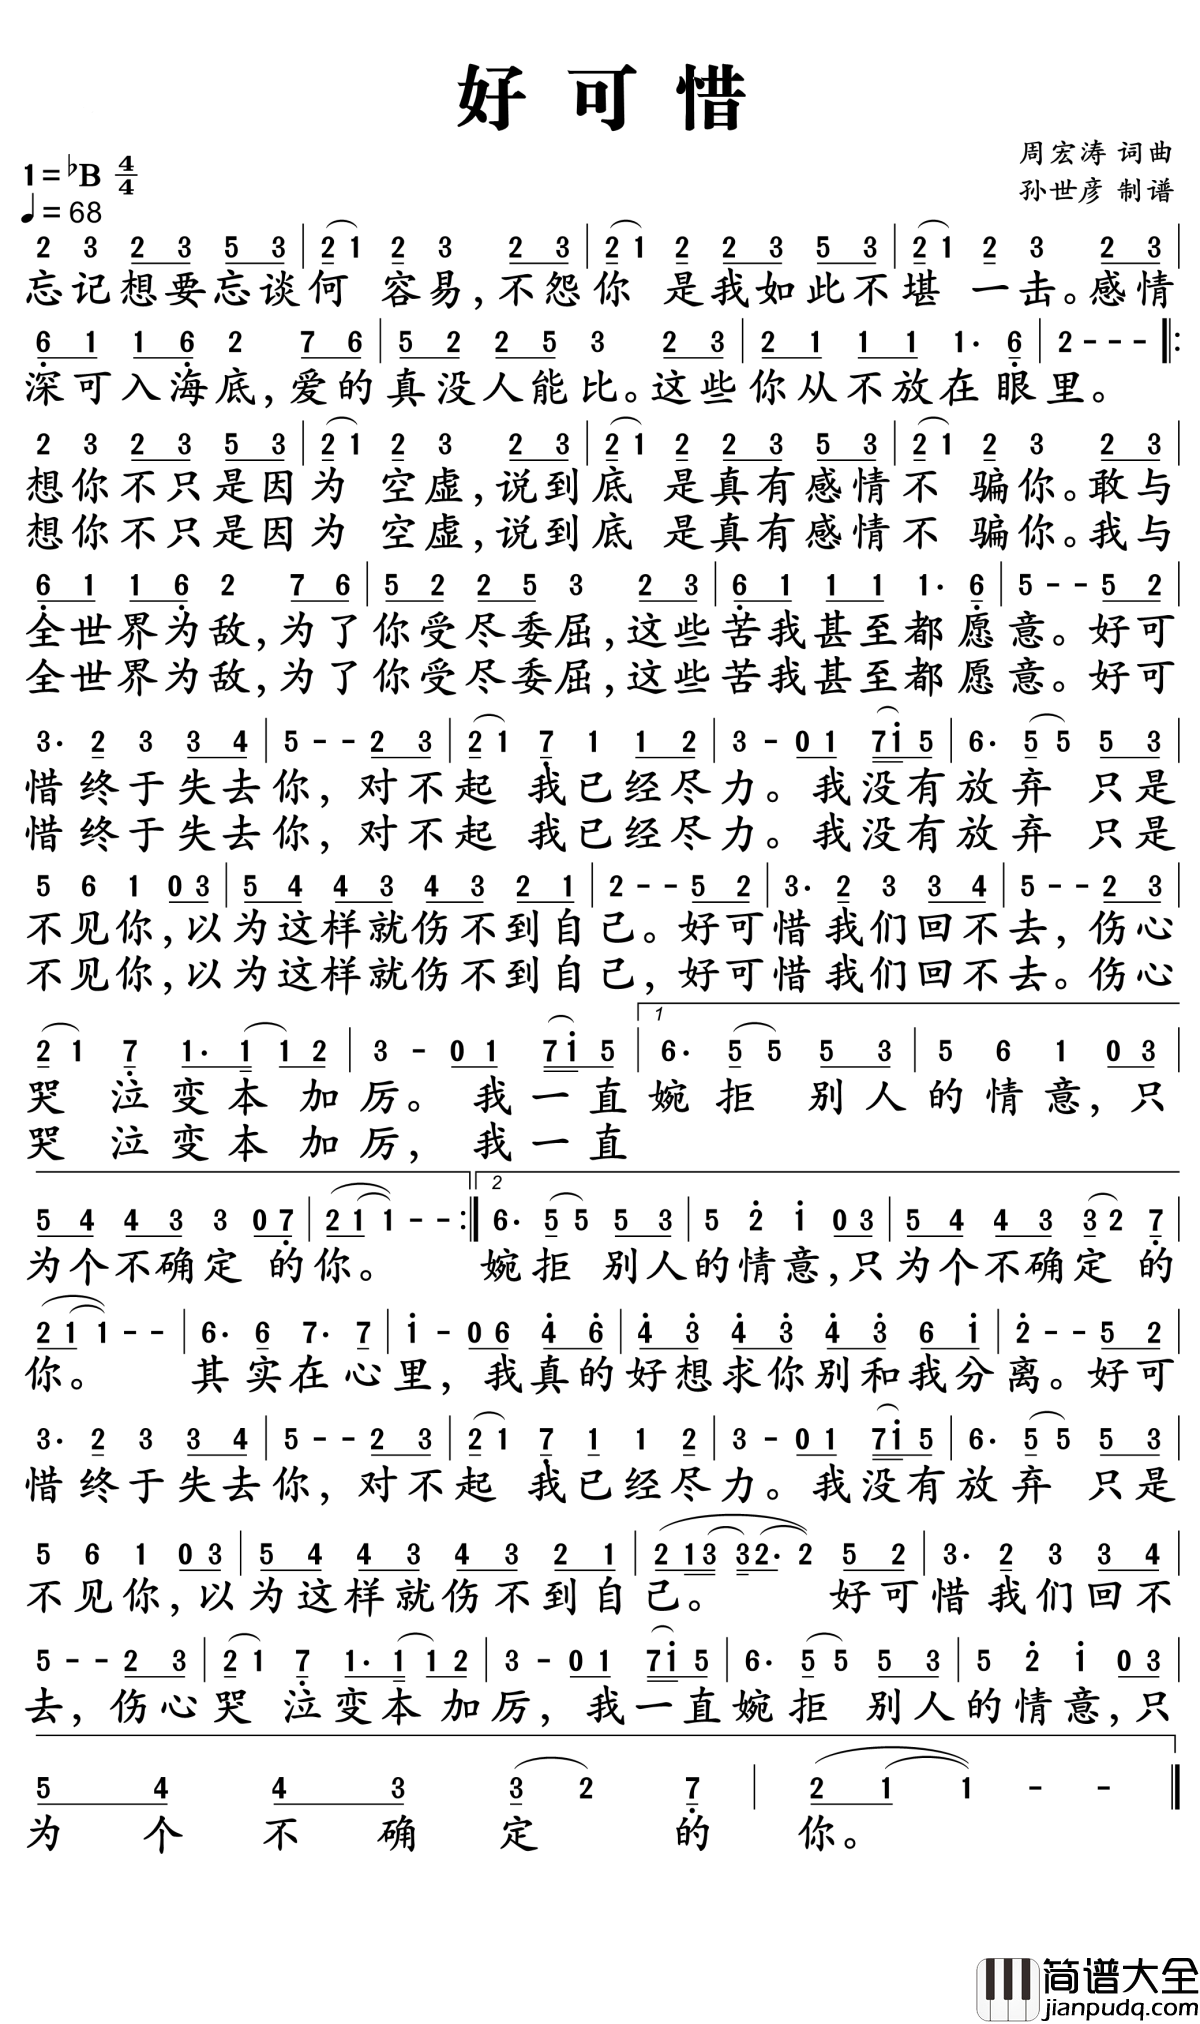 好可惜
周宏涛 词曲
1=♭B 4/4
孙世彦 制谱
♩=68
2 3 2 3 5 3 | 2 1 2 3 2 3 | 2 1 2 2 3 5 3 | 2 1 2 3 2 3 |
忘记想要忘谈何 容易,不怨你 是我如此不堪 一击。感情
6 1 1 6 2 7 6 | 5 2 2 5 3 2 3 | 2 1 1 1 1· 6 | 2 - - - ‖:
深可入海底,爱的真没人能比。这些你从不放在眼里。
2 3 2 3 5 3 | 2 1 2 3 2 3 | 2 1 2 2 3 5 3 | 2 1 2 3 2 3 |
想你不只是因为 空虚,说到底 是真有感情不 骗你。敢与
想你不只是因为 空虚,说到底 是真有感情不 骗你。我与
6 1 1 6 2 7 6 | 5 2 2 5 3 2 3 | 6 1 1 1 1· 6 | 5 - - 5 2 |
全世界为敌,为了你受尽委屈,这些苦我甚至都愿意。好可
全世界为敌,为了你受尽委屈,这些苦我甚至都愿意。好可
3· 2 3 3 4 | 5 - - 2 3 | 2 1 7 1 1 2 | 3 - 0 1 7 i 5 | 6· 5 5 5 3 |
惜终于失去你,对不起 我已经尽力。我没有放弃 只是
惜终于失去你,对不起 我已经尽力。我没有放弃 只是
5 6 1 0 3 | 5 4 4 3 4 3 2 1 | 2 - - 5 2 | 3· 2 3 3 4 | 5 - - 2 3 |
不见你,以为这样就伤不到自己。好可惜我们回不去,伤心
不见你,以为这样就伤不到自己,好可惜我们回不去。伤心
2 1 7 1· 1 1 2 | 3 - 0 1 7 i 5 | 1 6· 5 5 5 3 | 5 6 1 0 3 |
哭 泣变本加厉。我一直婉拒 别人的情意,只
哭 泣变本加厉,我一直
5 4 4 3 3 0 7 | 2 1 1 - - :‖ 2 6· 5 5 5 3 | 5 2 i 0 3 | 5 4 4 3 3 2 7 |
为个不确定 的你。 婉拒 别人的情意,只为个不确定 的
2 1 1 - - | 6· 6 7· 7 | i - 0 6 4 6 | 4 3 4 3 4 3 6 i | 2 - - 5 2 |
你。 其实在心里,我真的好想求你别和我分离。好可
3· 2 3 3 4 | 5 - - 2 3 | 2 1 7 1 1 2 | 3 - 0 1 7 i 5 | 6· 5 5 5 3 |
惜终于失去你,对不起 我已经尽力。我没有放弃 只是
5 6 1 0 3 | 5 4 4 3 4 3 2 1 | 2 1 3 3 2· 2 5 2 | 3· 2 3 3 4 |
不见你,以为这样就伤不到自己。 好可惜我们回不
5 - - 2 3 | 2 1 7 1· 1 1 2 | 3 - 0 1 7 i 5 | 6· 5 5 5 3 | 5 2 i 0 3 |
去,伤心哭 泣变本加厉,我一直婉拒 别人的情意,只
5 4 4 3 3 2 7 | 2 1 1 - - ‖
为个不确定 的你。
简谱大全
jianpudq.com